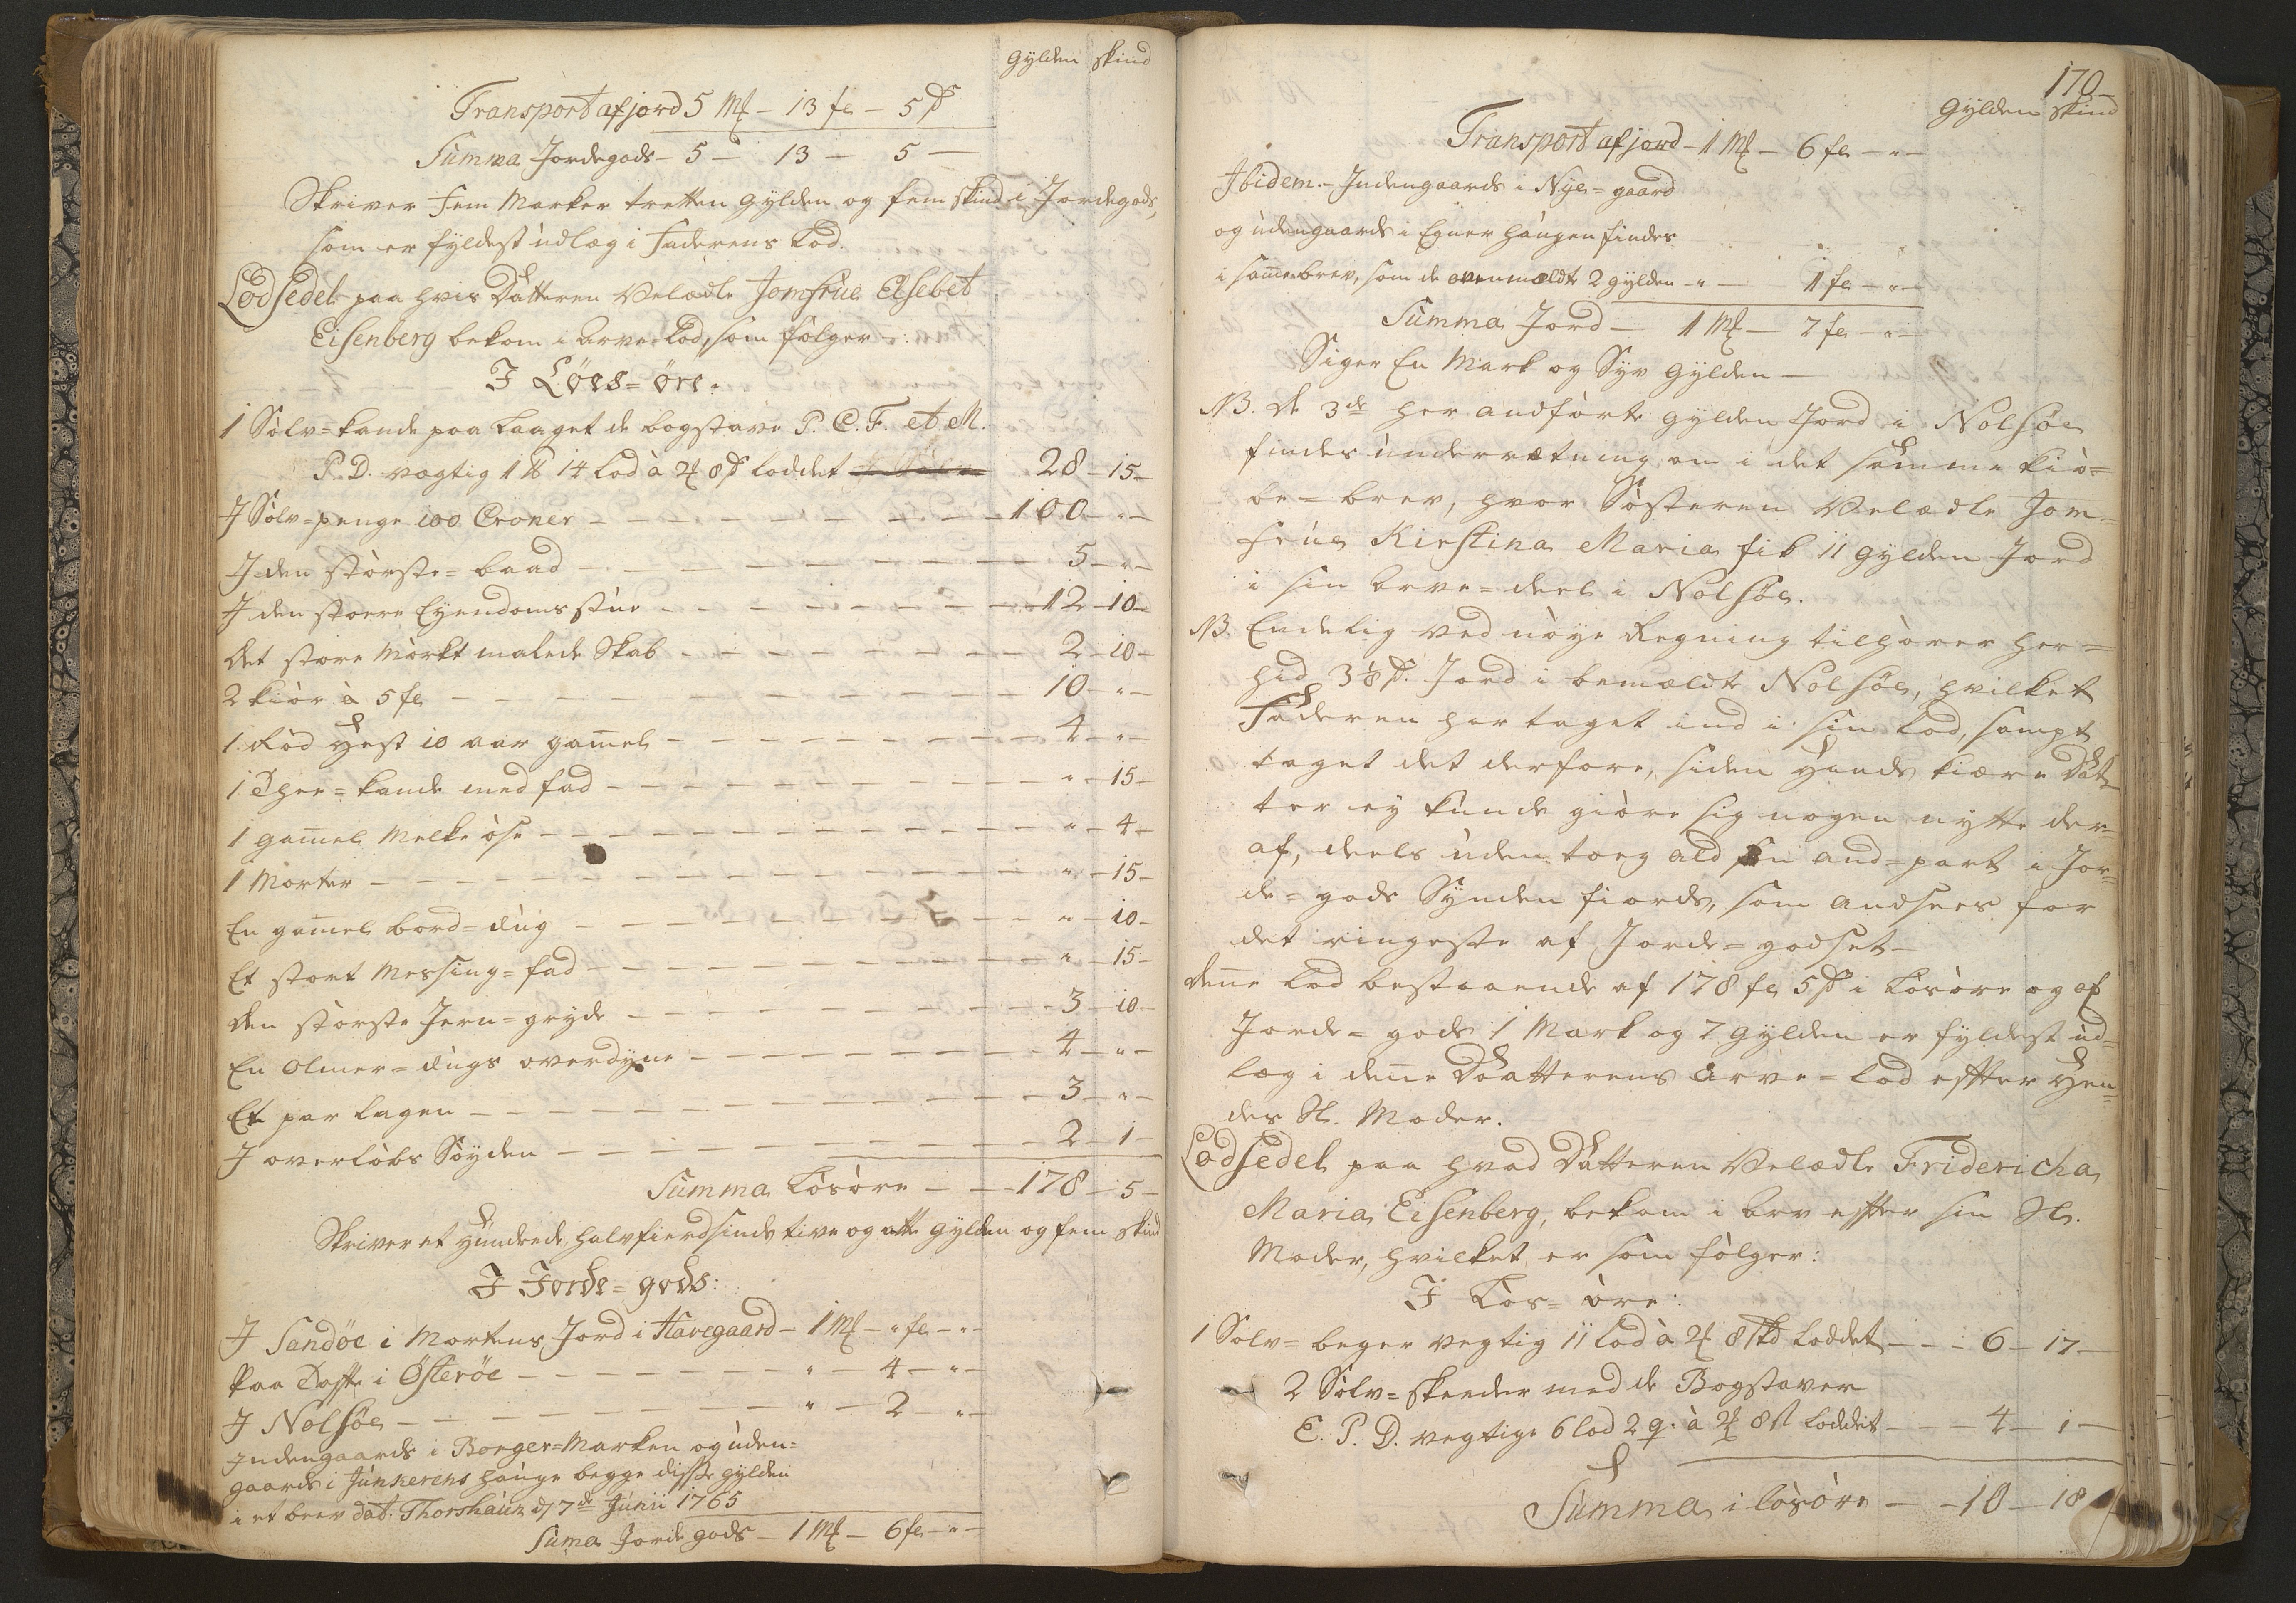 Gylden skind
Transport af jord 5 Mk – 13 fl – 5 s
Summa Jordegods – 5 – 13 – 5 –
Skriver Fem Marker tretten Gylden og fem skind i Jordegods,
som er fyldest udlæg i Faderens Lod.
Lodsedel paa hvis Datteren Velædle Jomfrue Elsebet
Eisenberg bekom i Arve-Lod, som følger –
I Løes=øre.
1 Sølv=kande paa Laaget de bogstave P. C. F. et M.
P. D. vægtig 1 ℔ 14 Lod à 4 8 s Loddet 28 – 15 –
I Sølv=penge 100 Croner – 100 – " –
I den største=baad – 5 – " –
I den større Eyendoms stue – 12 – 10 –
Det store Mørkt malede Skab – 2 – 10 –
2 kiør à 5 fl – 10 – " –
1 Rød Hest 10 aar gam̅el – 4 – " –
1 Thee=kande med fad – " – 15 –
1 gam̅el Melke øse – " – 4 –
1 Morter – " – 15 –
En gam̅el bord=dug – " – 10 –
Et stort Messing=fad – " – 15 –
Den største Jern=gryde – 3 – 10 –
En Olmer=dugs overdyne – 4 – " –
Et par Lagen – 3 – " –
I overløbs Søyden – 2 – 1 –
Summa Løsøre – 178 – 5 –
Skriver et Hundrede, halvfierdsinds tive og otte Gylden og fem skind
I Jorde=gods:
I Sandøe i Mortens Jord i Havegaard – 1 Mk – " fl – " –
Paa Tofte i Østerøe – " – 4 – " –
I Nolsøe – " – 2 – " –
Indengaards i Borger=Marken og uden=
gaards i Junkerens hauge begge disse gylden
i et brev dat. Thorshaun d/ 7de Junii 1765
Sum̅a Jorde gods – 1 Mk – 6 fl – " –
170
Gylden skind
Transport af jord – 1 Mk – 6 fl – " –
Ibidem – Indengaards i Nye=gaard
og udengaards i Egner haugen findes
i sam̅e brev, som de ovenmeldte 2 gylden – " – 1 fl – " –
Summa Jord – 1 Mk – 7 fl – " –
Siger En Mark og Syv Gylden –
NB. De 3de her anførte Gylden Jord i Nolsøe
findes underretning om i det samme kiø=
be=brev, hvor Søsteren Velædle Jom=
frue Kirstina Maria fik 11 Gylden Jord
i sin Arve=deel i Nolsøe.
NB. Endelig ved nøye Regning tilhører her=
hid 3 1/8 s. Jord i bemeldte Nolsøe, hvilket
Faderen har taget ind i sin Lod, sampt
taget det derfore, siden Hands kiære Dat=
ter ey kunde giøre sig nogen nytte der=
af, deels uden tog ald sin and=part i Jor=
de=gods Synden fiords, som ansees for
det ringeste af Jorde=godset –
Den̅e Lod bestaaende af 178 fl 5 s i Løsøre og af
Jorde=gods 1 Mark og 7 Gylden er fyldest ud=
læg i den̅e Daatterens Arve=Lod efter Hen=
des Sl. Moder.
Lodsedel paa hvad Datteren Velædle Fridericha
Maria Eisenberg, bekom i Arv efter sin Sl.
Moder, hvilket er som følger:
I Løs=øre:
1 Sølv=beger vegtig 11 Lod à 4 8 skd Loddet – 6 – 17 –
2 Sølv=skeeder med de Bogstaver
E. P. D. vegtige 6 lod 2 q. à 4 8 s Loddet – 4 – 1 –
Summa i Løsøre – 10 – 18